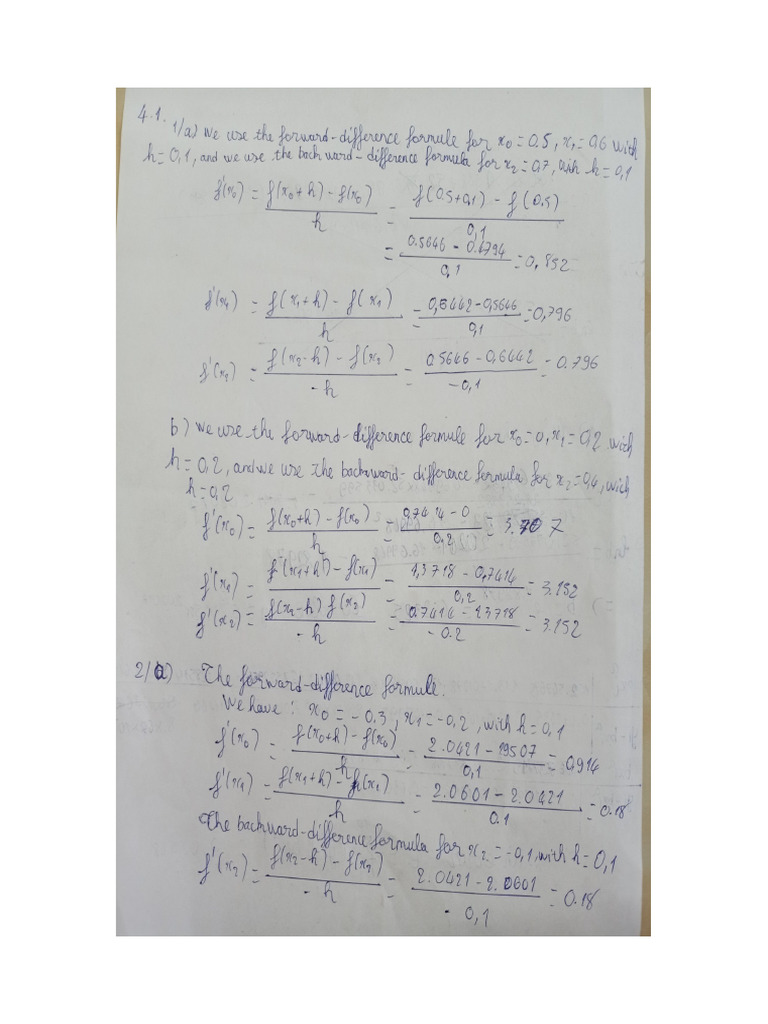 4.1.
1/a) We use the forward-difference formule for x₀ = 0,5, x₁ = 0,6 with
h = 0,1, and we use the backward-difference formula for x₂ = 0,7, with h = 0,1
f'(x₀) = f(x₀+h) - f(x₀) / h = f(0.5+0,1) - f(0.5) / 0,1
= 0.5646 - 0.4794 / 0,1 = 0,852
f'(x₁) = f(x₁+h) - f(x₁) / h = 0,6442 - 0,5646 / 0,1 = 0,796
f'(x₂) = f(x₂-h) - f(x₂) / -h = 0.5646 - 0,6442 / -0,1 = 0.796
b) We use the forward-difference formule for x₀ = 0, x₁ = 0,2 with
h = 0,2, and we use the backward-difference formula for x₂ = 0,4, with
h = 0,2
f'(x₀) = f(x₀+h) - f(x₀) / h = 0,7414 - 0 / 0,2 = 3.707
f'(x₁) = f(x₁+h) - f(x₁) / h = 1,3718 - 0,7414 / 0,2 = 3.152
f'(x₂) = f(x₂-h) f(x₂) / -h = 0.7414 - 1.3718 / -0.2 = 3.152
2/a) The forward-difference formule.
We have: x₀ = -0.3, x₁ = -0,2, with h = 0,1
f'(x₀) = f(x₀+h) - f(x₀) / h = 2.0421 - 19507 / 0,1 = 0,914
f'(x₁) = f(x₁+h) - f(x₁) / h = 2.0601 - 2.0421 / 0.1 = 0.18
The backward-difference formula for x₂ = -0,1, with h = 0,1
f'(x₂) = f(x₂-h) - f(x₂) / -h = 2.0421 - 2.0601 / -0,1 = 0.18